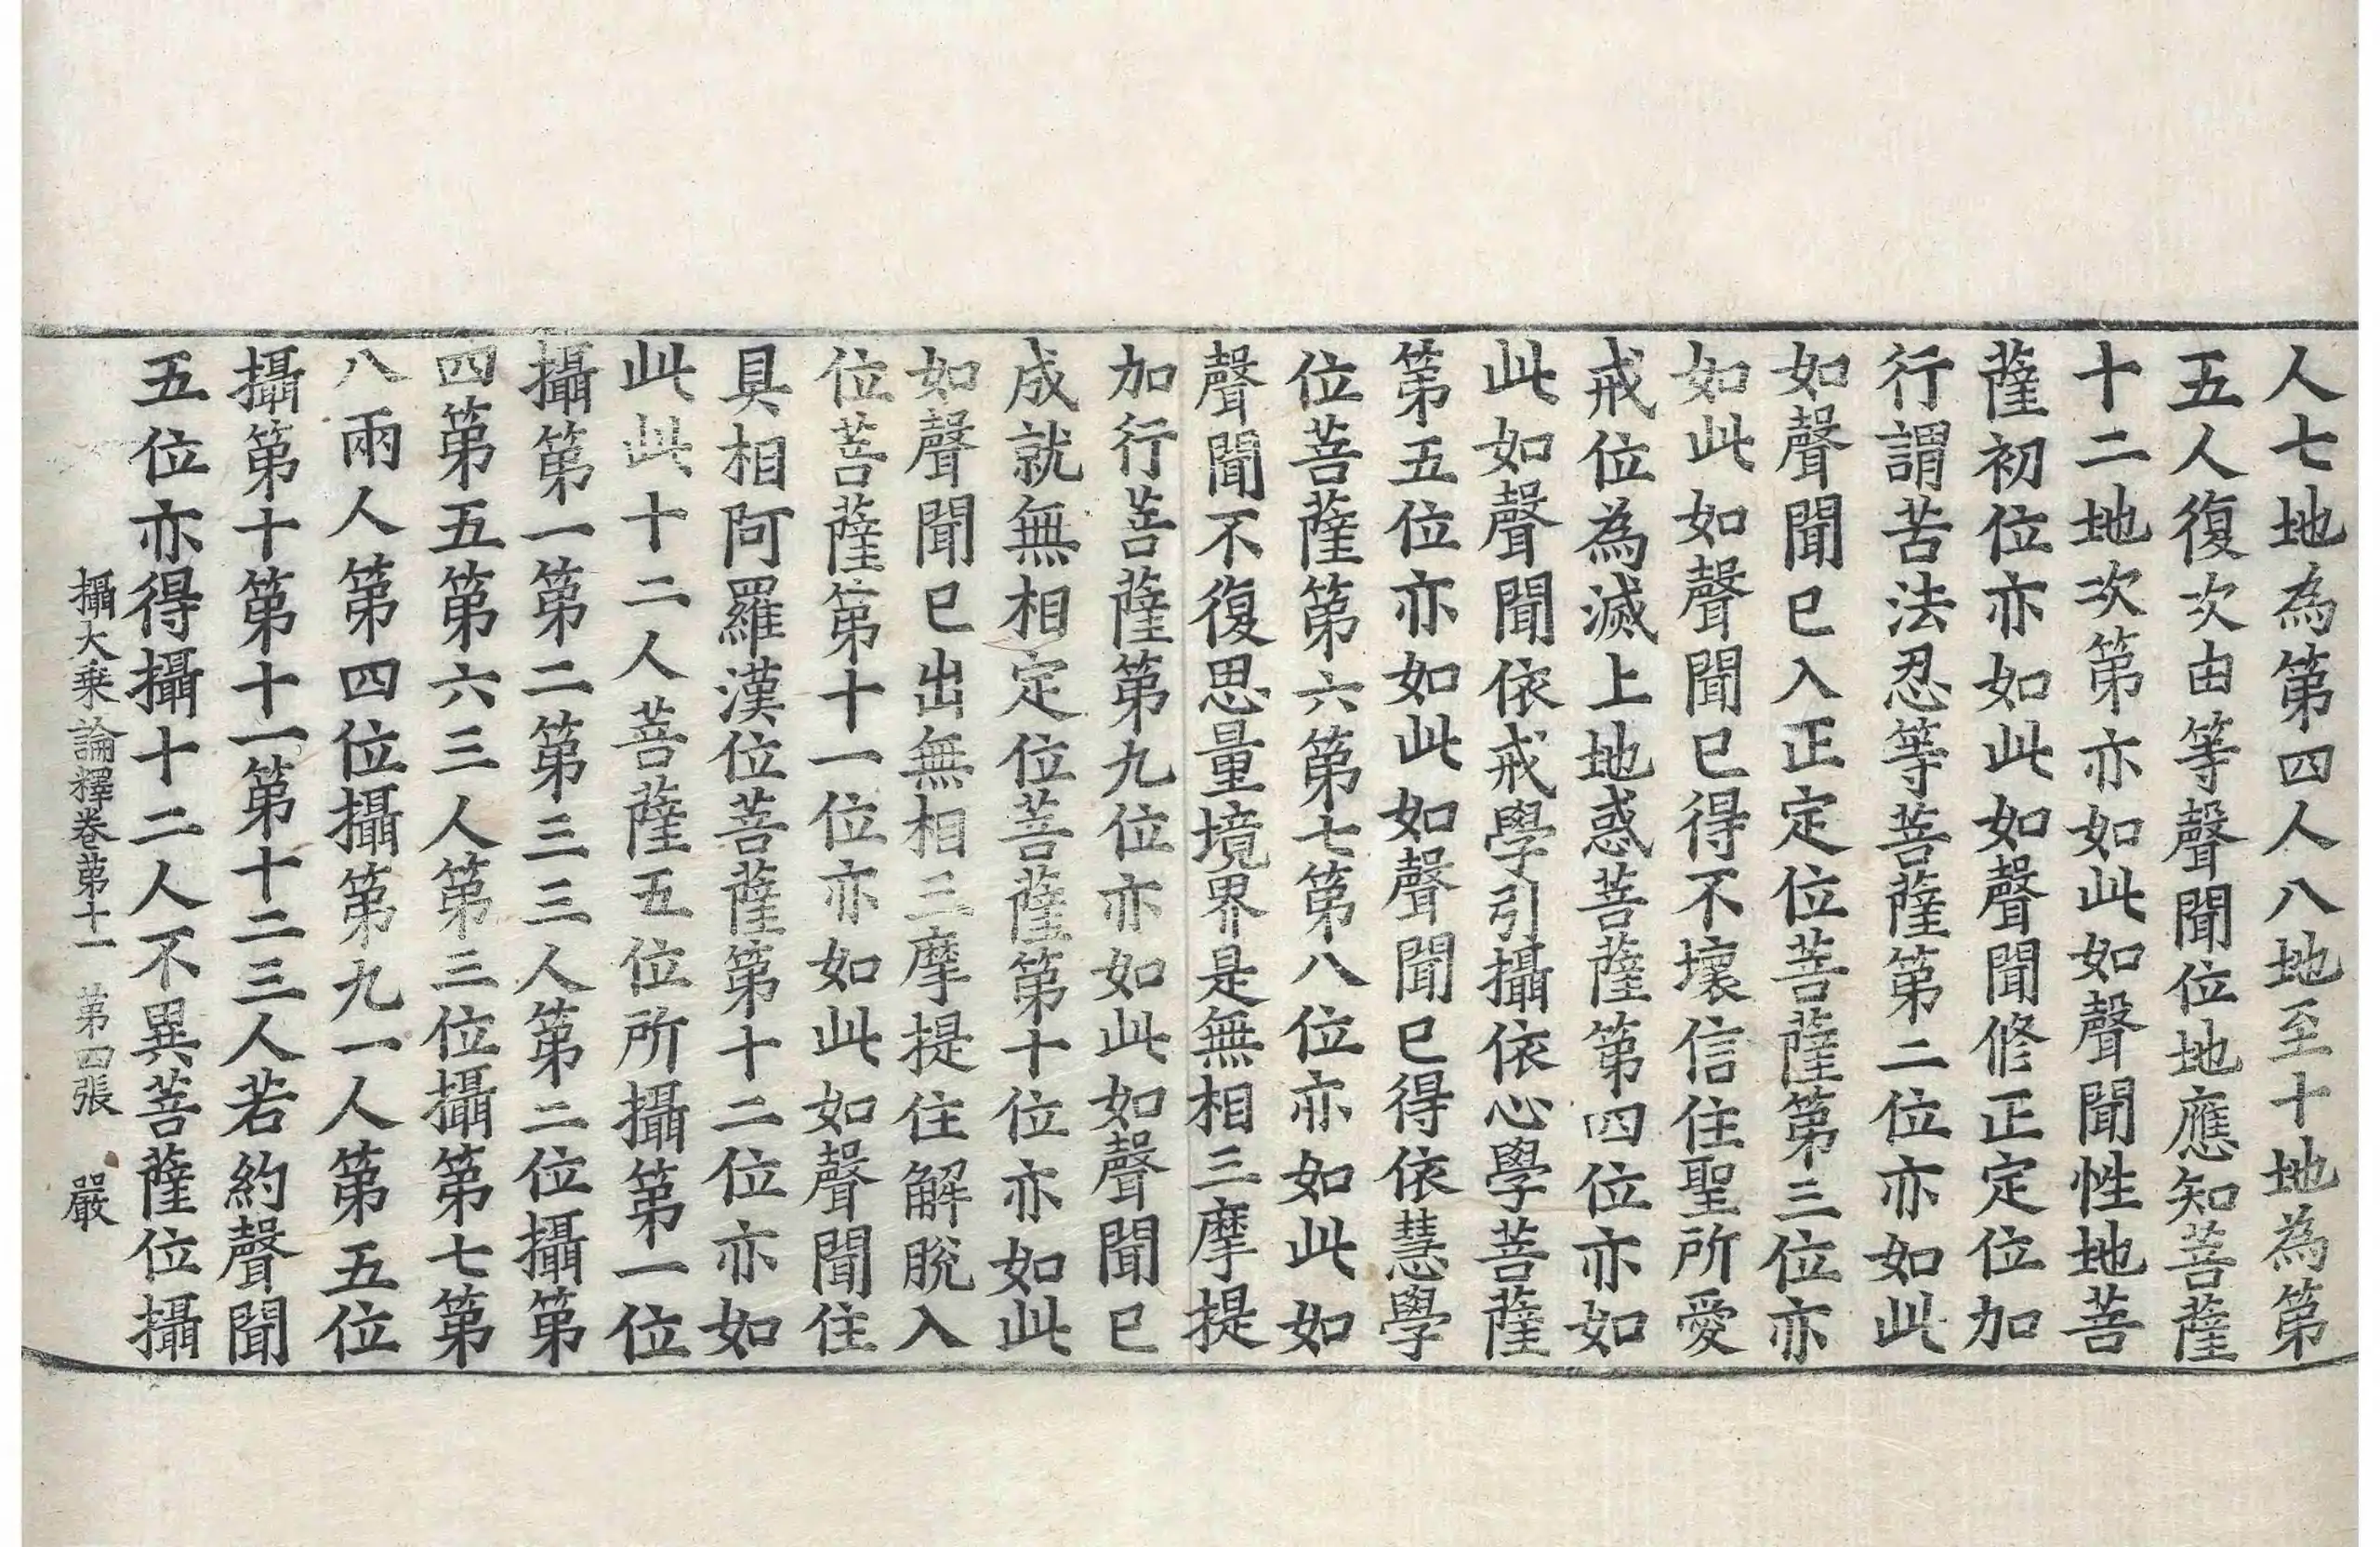 人七地為第四人八地至十地為第
五人復次由等聲聞位地應知菩薩
十二地次第亦如此如聲聞性地菩
薩初位亦如此如聲聞修正定位加
行謂苦法忍等菩薩第二位亦如此
如聲聞已入正定位菩薩第三位亦
如此如聲聞已得不壞信住聖所愛
戒位為滅上地惑菩薩第四位亦如
此如聲聞依戒學引攝依心學菩薩
第五位亦如此如聲聞已得依慧學
位菩薩第六第七第八位亦如此如
聲聞不復思量境界是無相三摩提
加行菩薩第九位亦如此如聲聞已
成就無相定位菩薩第十位亦如此
如聲聞已出無相三摩提住解脫入
位菩薩第十一位亦如此如聲聞住
具相阿羅漢位菩薩第十二位亦如
此此十二人菩薩五位所攝第一位
攝第一第二第三三人第二位攝第
四第五第六三人第三位攝第七第
八兩人第四位攝第九一人第五位
攝第十第十一第十二三人若約聲聞
五位亦得攝十二人不異菩薩位攝
攝大乘論釋卷第十一 第四張 嚴